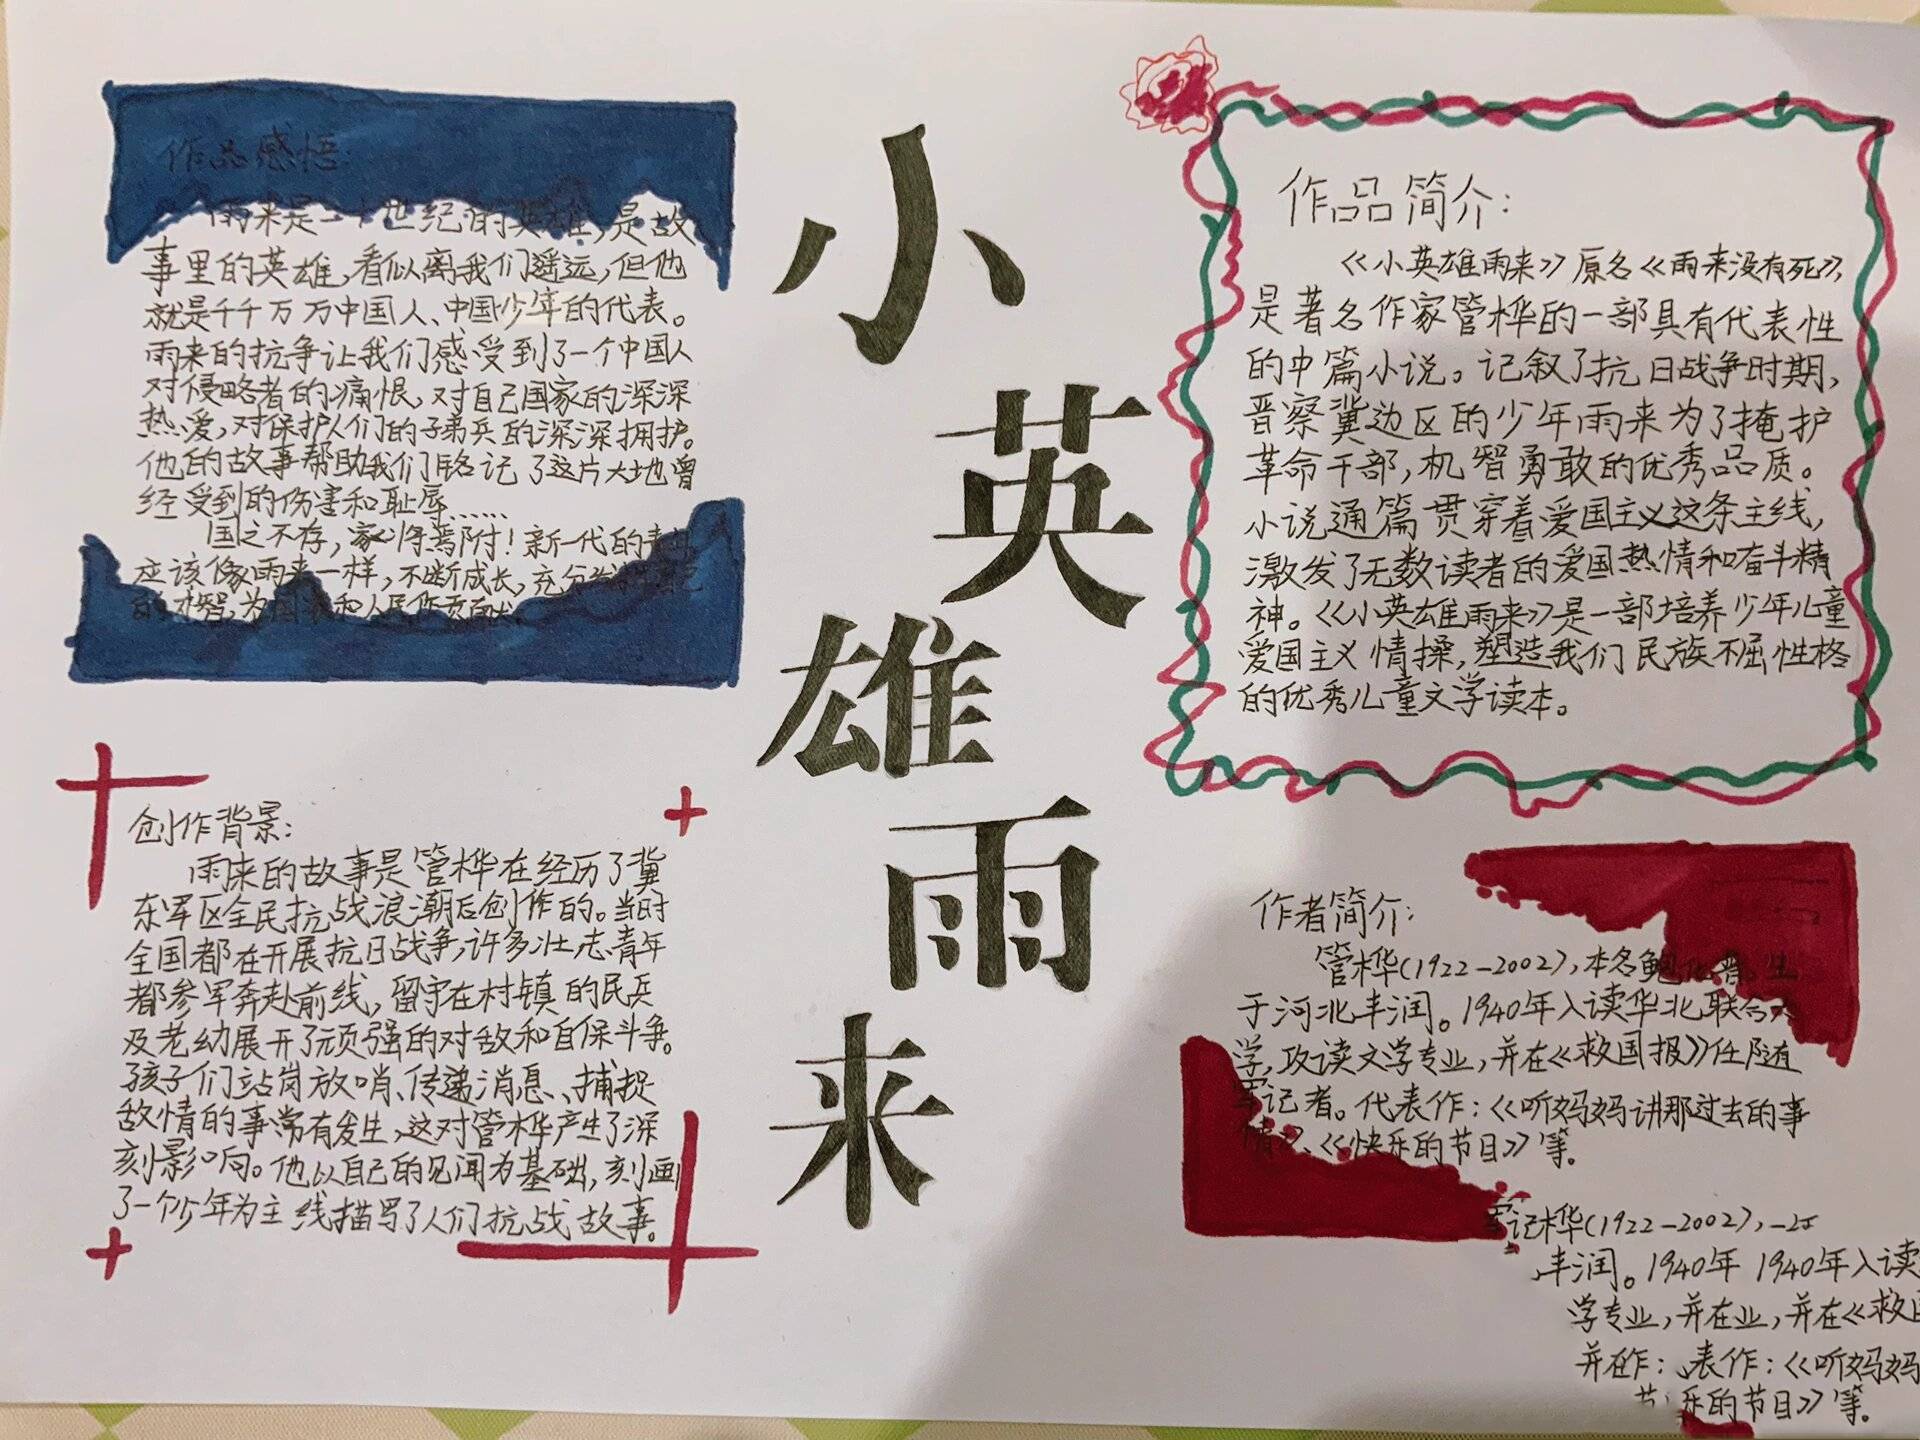 小英雄雨来
作品感悟:
雨来是二十世纪的英雄,是故
事里的英雄,看似离我们遥远,但他
就是千千万万中国人、中国少年的代表。
雨来的抗争让我们感受到了一个中国人
对侵略者的痛恨,对自己国家的深深
热爱,对保护人们的子弟兵的深深拥护。
他的故事帮助我们铭记了这片大地曾
经受到的伤害和耻辱……
国之不存,家将焉附!新一代的
应该像雨来一样,不断成长,充分
的才智,为国家和人民作贡献。
作品简介:
《小英雄雨来》原名《雨来没有死》,
是著名作家管桦的一部具有代表性
的中篇小说。记叙了抗日战争时期,
晋察冀边区的少年雨来为了掩护
革命干部,机智勇敢的优秀品质。
小说通篇贯穿着爱国主义这条主线,
激发了无数读者的爱国热情和奋斗精
神。《小英雄雨来》是一部培养少年儿童
爱国主义情操,塑造我们民族不屈性格
的优秀儿童文学读本。
创作背景:
雨来的故事是管桦在经历了冀
东军区全民抗战浪潮后创作的。当时
全国都在开展抗日战争,许多壮志青年
都参军奔赴前线,留守在村镇的民兵
及老幼展开了顽强的对敌和自保斗争。
孩子们站岗放哨、传递消息、捕捉
敌情的事常有发生,这对管桦产生了深
刻影响。他以自己的见闻为基础,刻画
了一个少年为主线描写了人们抗战故事。
作者简介:
管桦(1922-2002),本名鲍化普,生
于河北丰润。1940年入读华北联合大
学,攻读文学专业,并在《救国报》任随
军记者。代表作:《听妈妈讲那过去的事
情》、《快乐的节日》等。
记桦(1922-2002),
丰润。1940年 1940年入读
学专业,并在业,并在《救国
并在作:表作:《听妈妈
乐的节日》等。